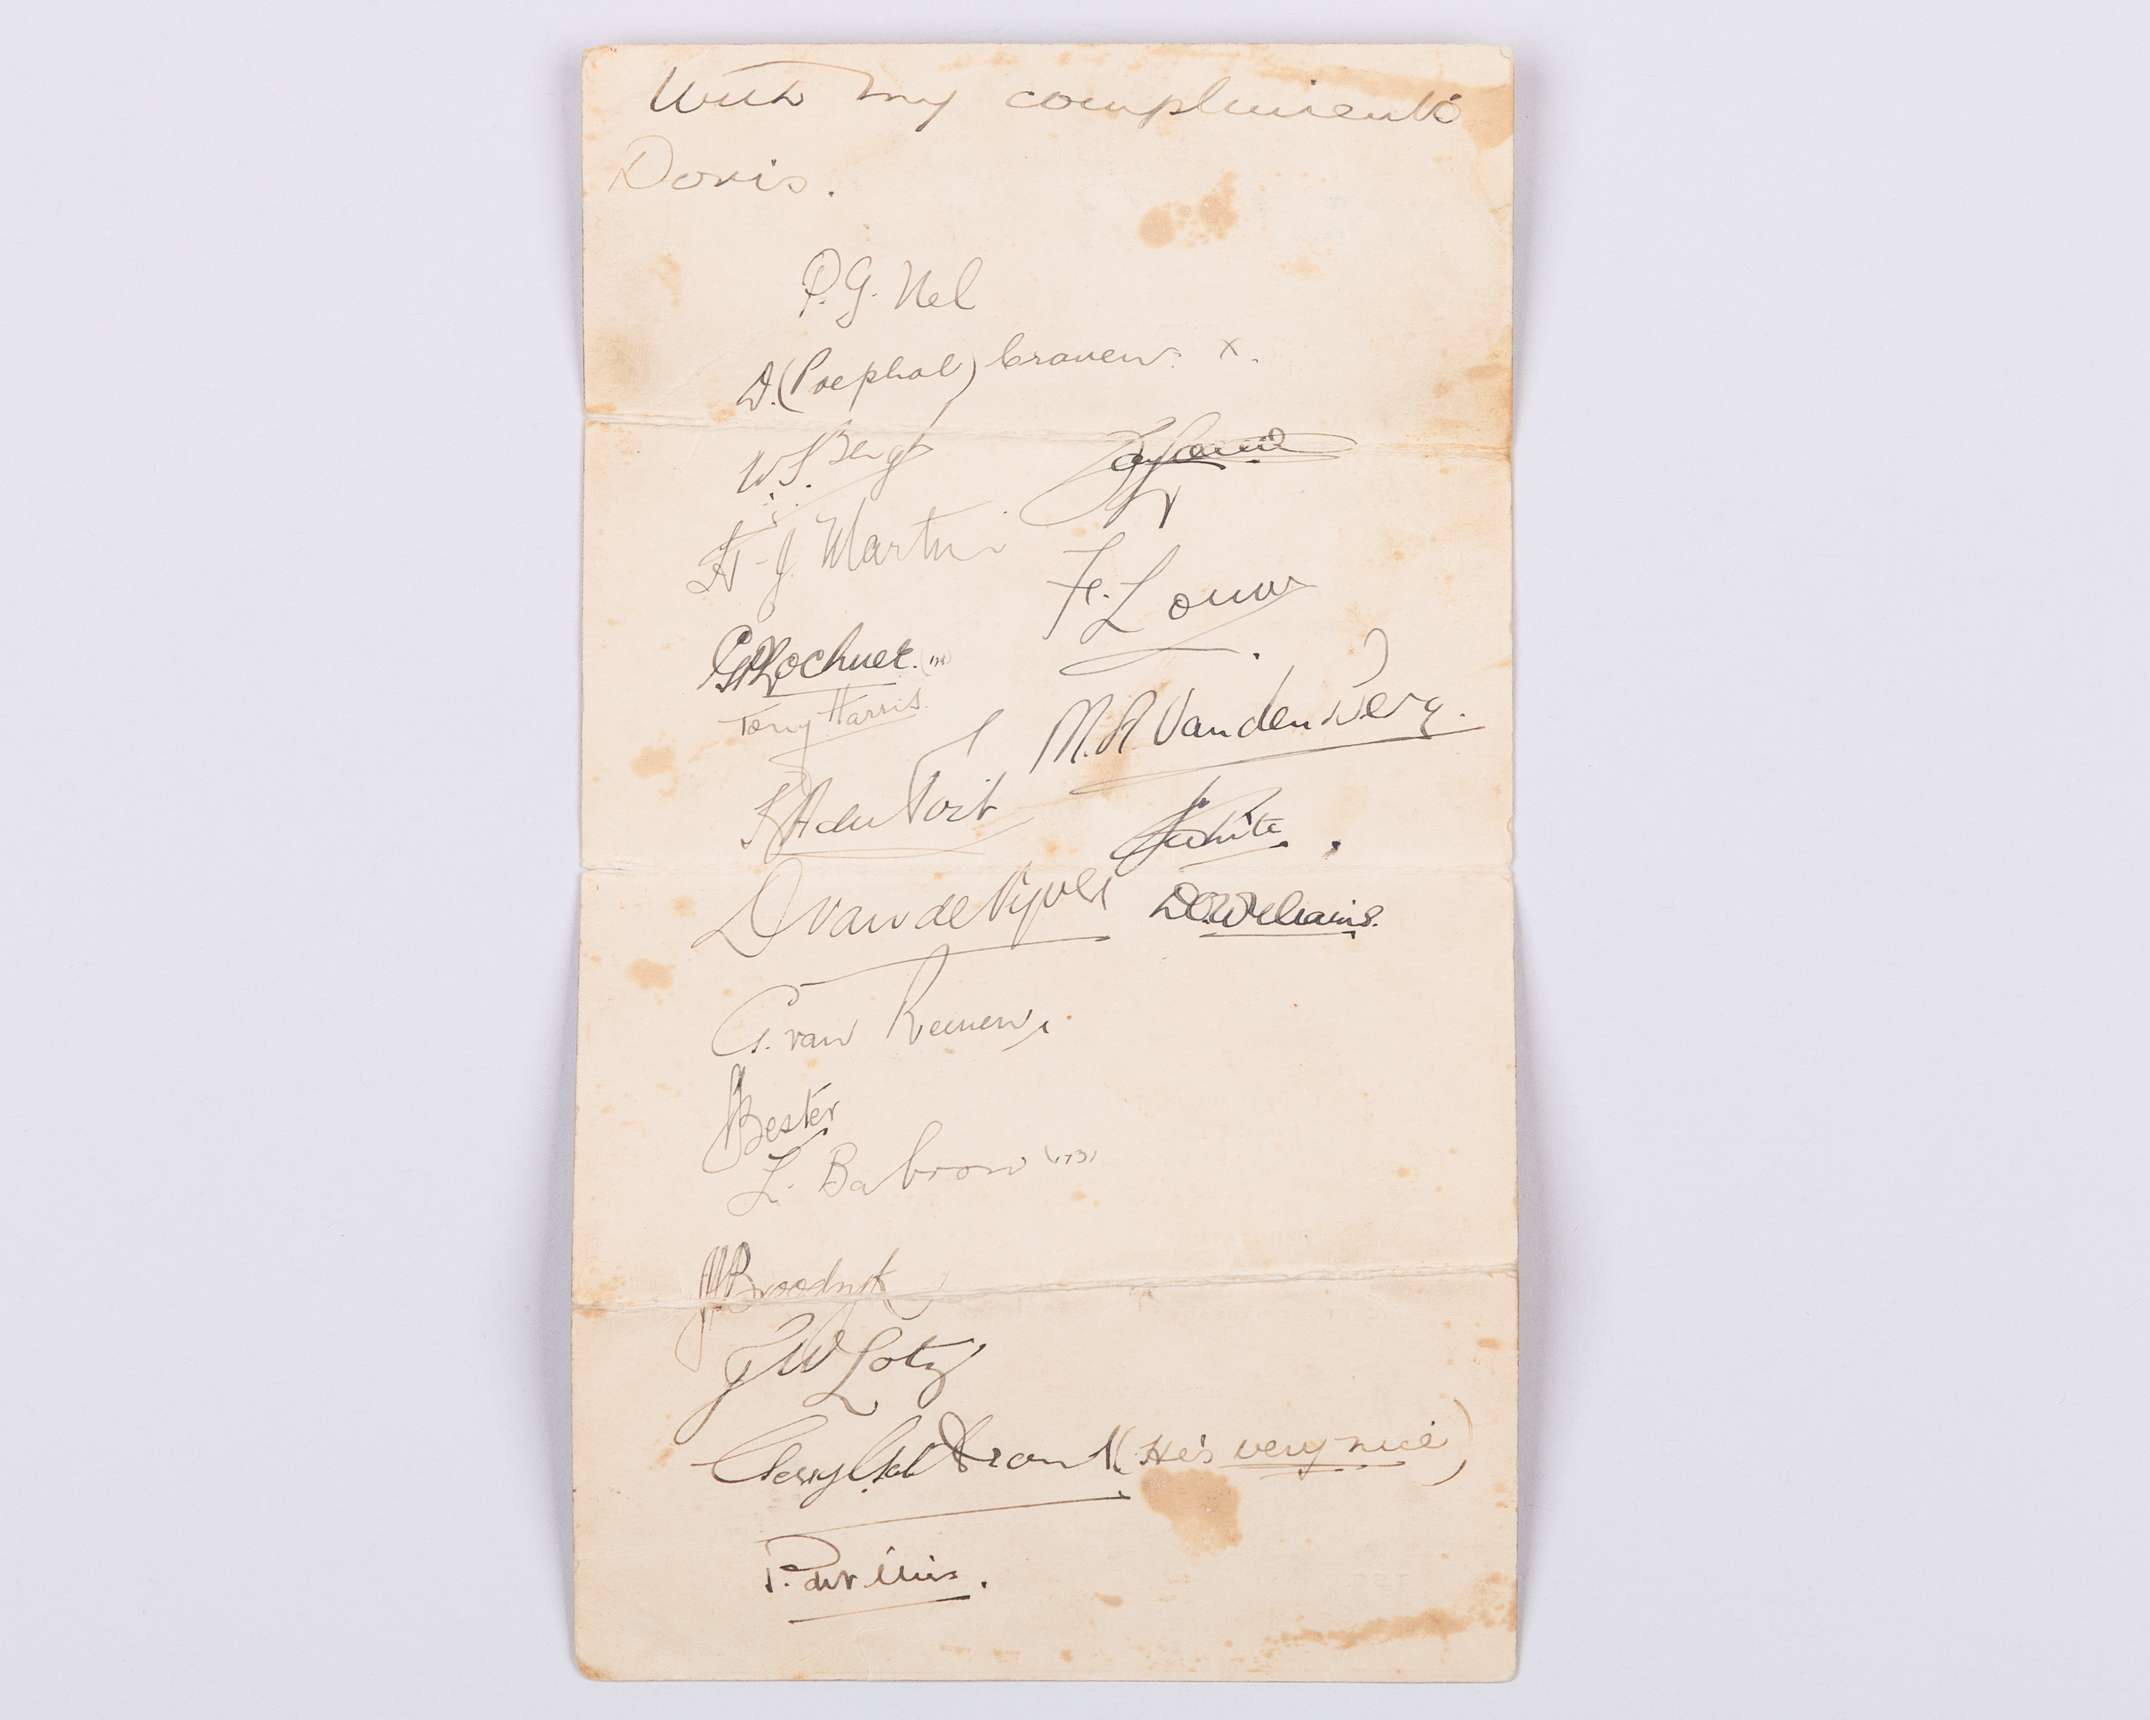 With my compliments
Doris.
P. G. Nel
D. (Poephol) Craven. x.
W. F. Bergh
H. J. Martin
F. Louw
G P Lochner.
Tony Harris.
M. A. Van den Berg.
P A du Toit
J White.
D van de Vyver
D.O. Williams.
G. van Reenen.
J Bester
L. Babrow
J Broodryk
J W Lotz
Gerry (He's very nice)
P. de Villiers.